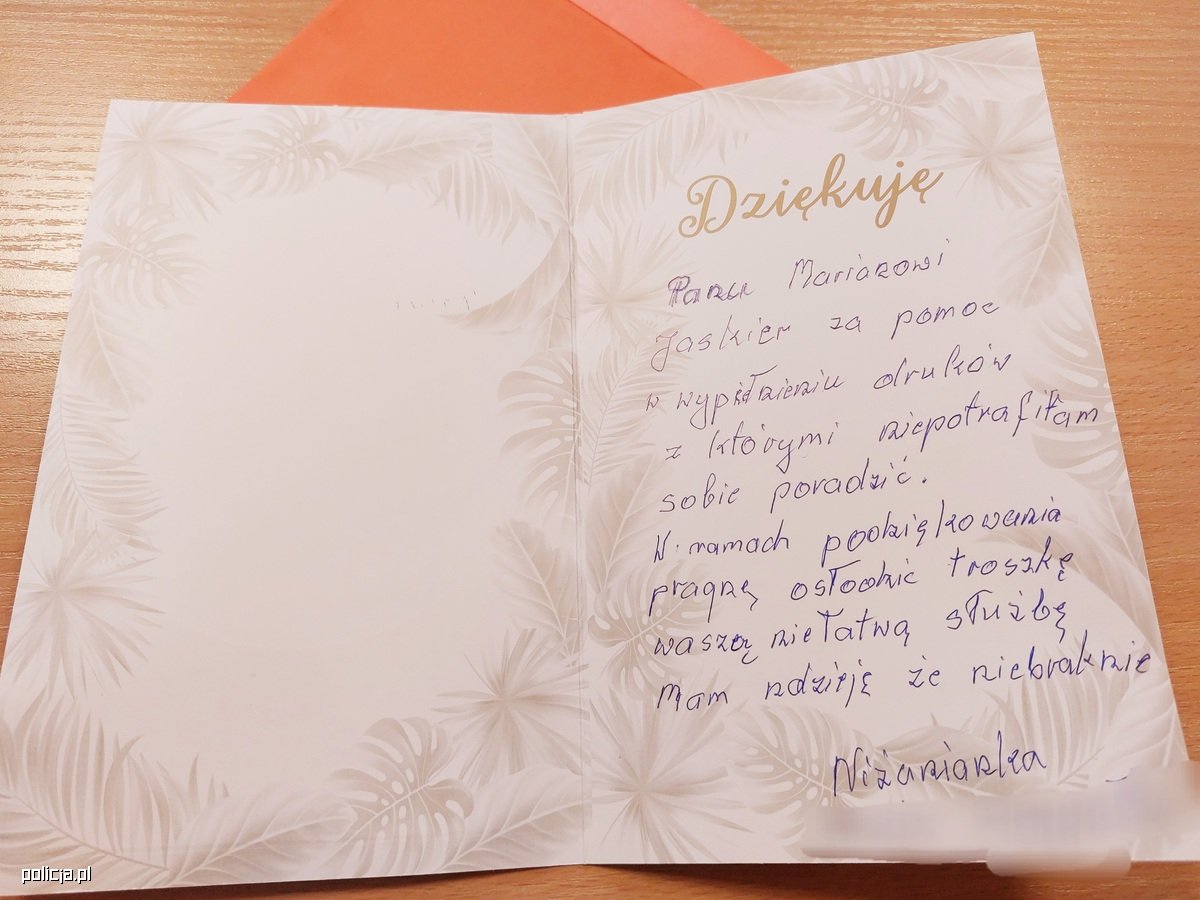 Dziękuję
Panu Mariuszowi
Jaskier za pomoc
w wypełnieniu druków
z którymi niepotrafiłam
sobie poradzić.
W ramach podziękowania
pragnę osłodzić troszkę
waszą niełatwą służbę
Mam ndzieję że niebraknie
Niżanianka
policja.pl